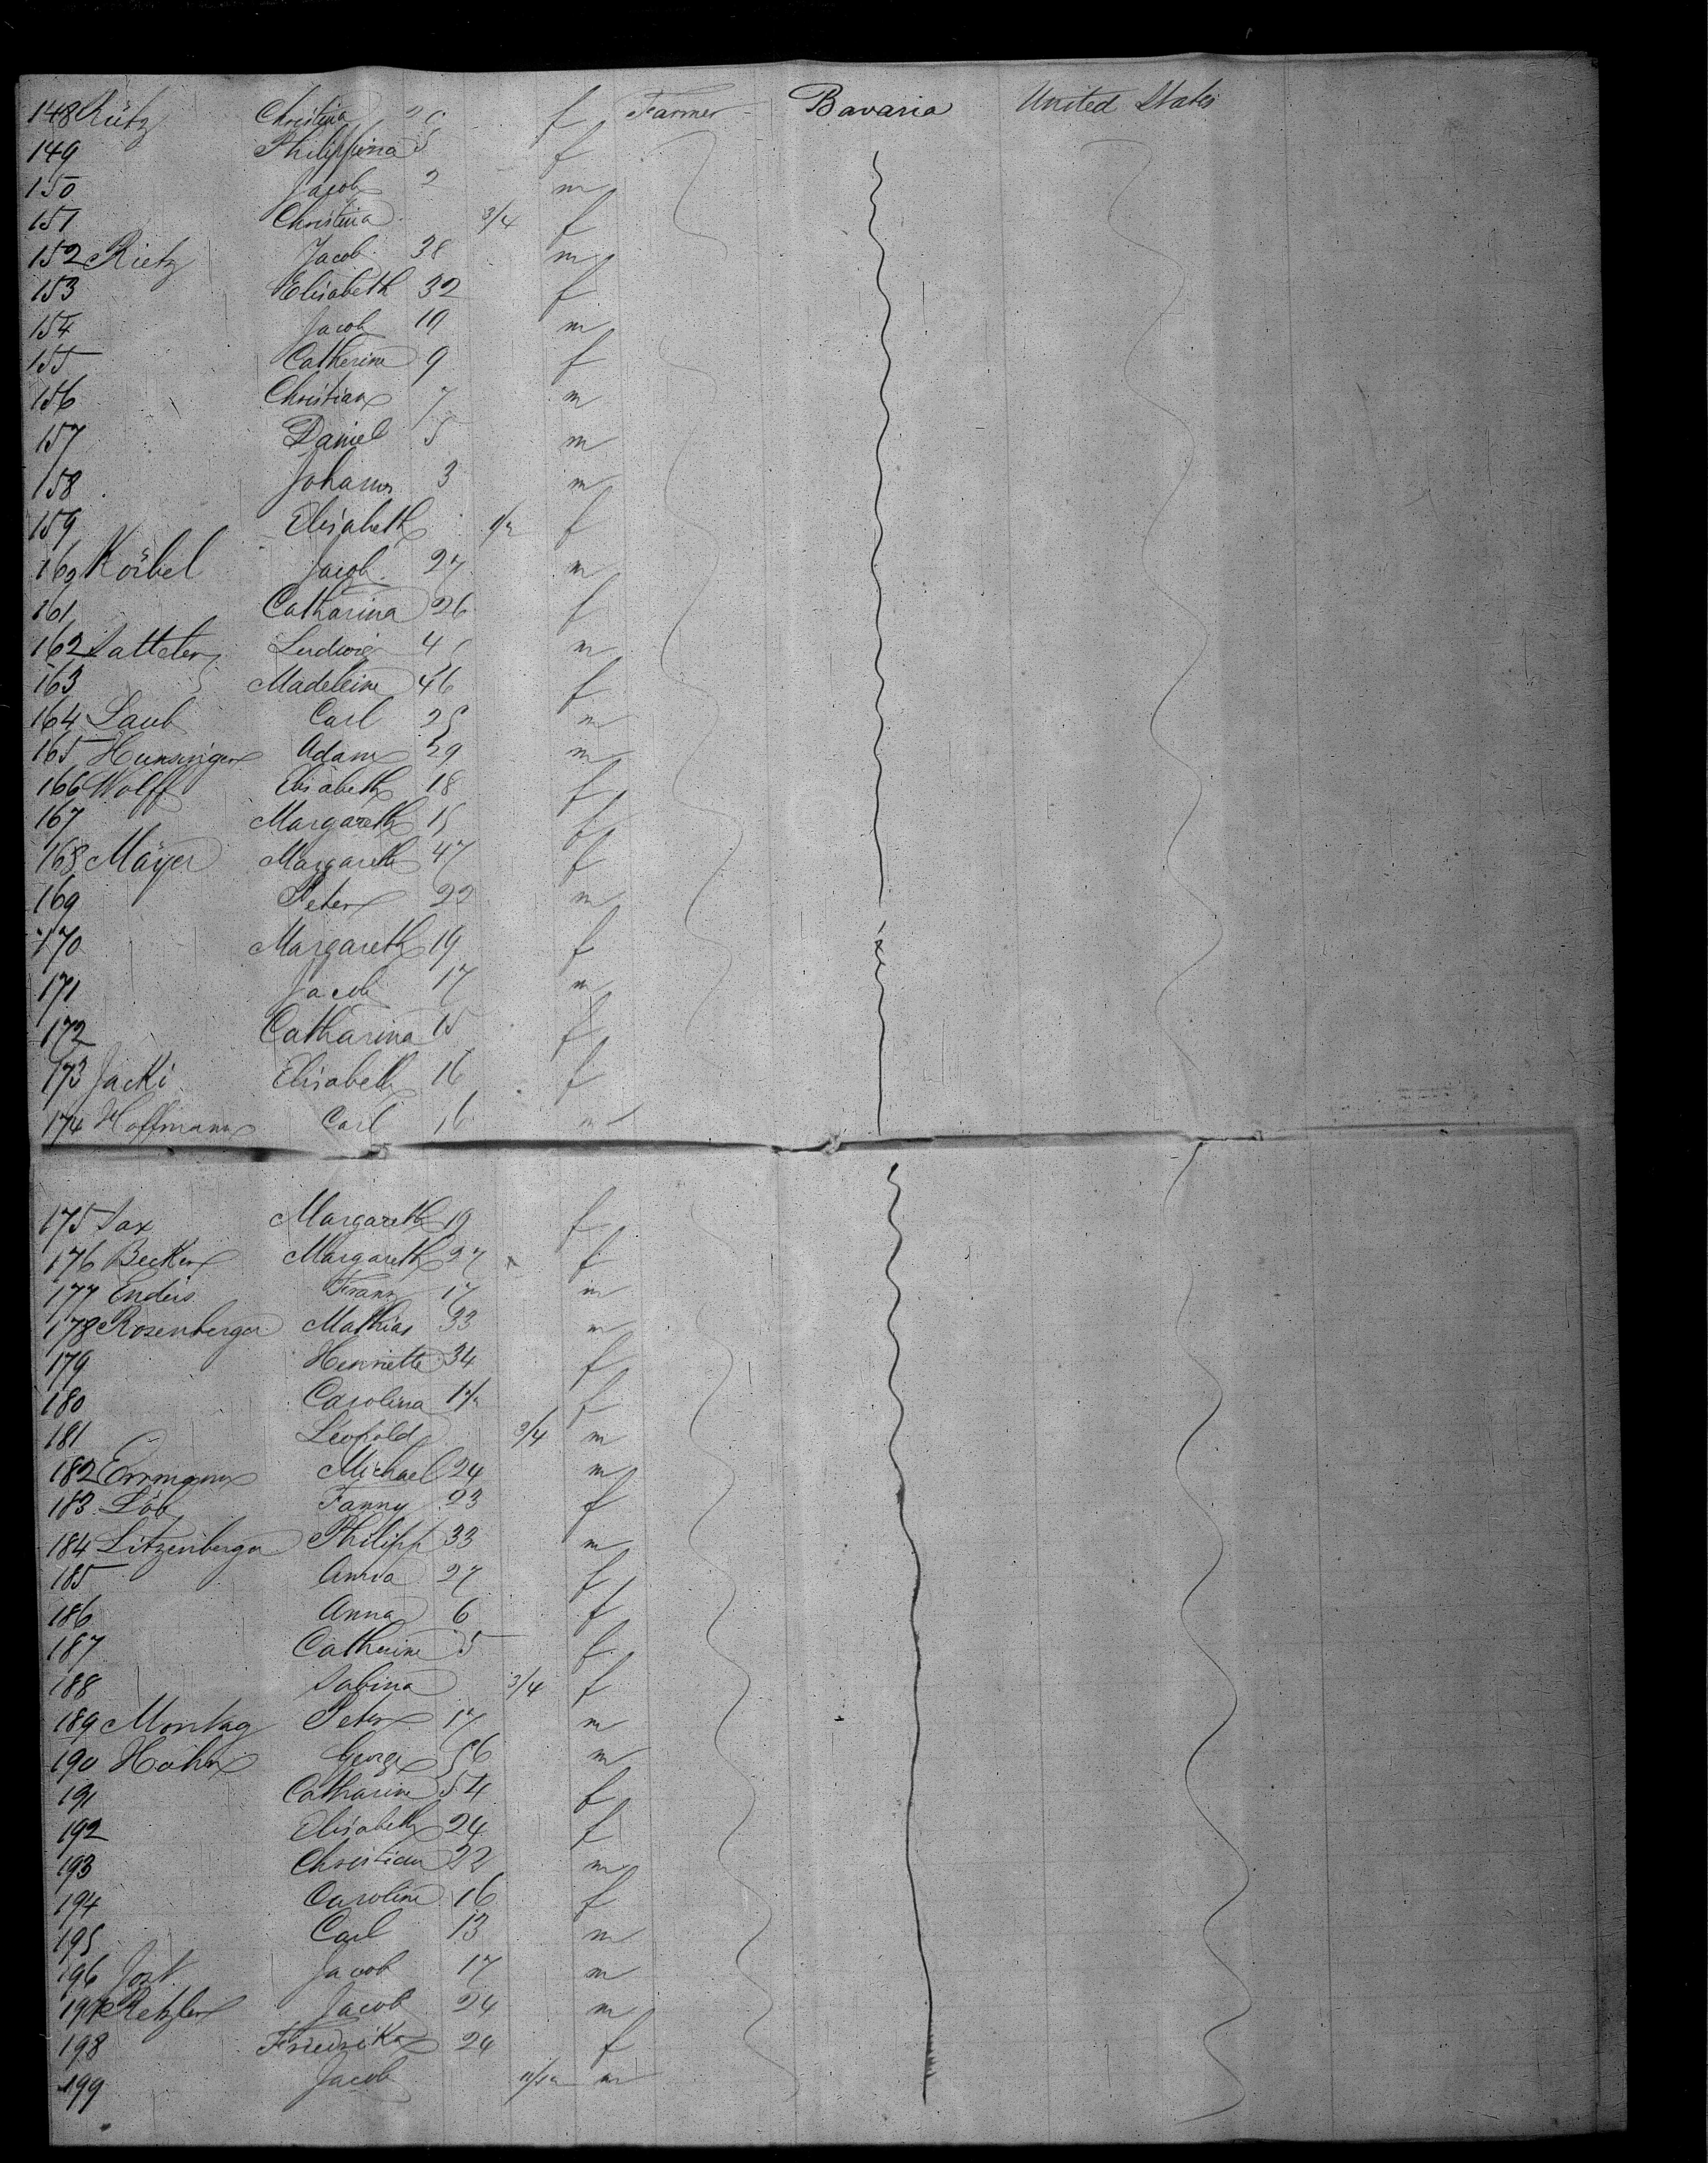 148 Rütz Christina f Farmer Bavaria United States
149 Philippina 5 f
150 Jacob 2 m
151 Christina 3/4 f
152 Rietz Jacob 38 m
153 Elisabeth 32 f
154 Jacob m
155 Catherine 9 f
156 Christian 7 m
157 Daniel 5 m
158 Johannes 3 m
159 Elisabeth 1/2 f
160 Körbel Jacob 27 m
161 Catharina 26 f
162 Ludwig m
163 Madeleine 46 f
164 Laub Carl 25 m
165 Hunsinger Adam 29 m
166 Wolff Elisabeth 18 f
167 Margareth 15 f
168 Mäyer Margareth 47 f
169 Peter 22 m
170 Margareth 19 f
171 Jacob 17 m
172 Catharina 15 f
173 Jacki Elisabeth 16 f
174 Hoffmann Carl 16 m
175 Sax Margareth 19 f
176 Becker Margareth 27 f
177 Enders Franz 17 m
178 Rosenberger Mathias 33 m
179 Henriette 34 f
180 Carolina f
181 Leopold 3/4 m
182 Michael 24 m
183 Löb Fanny 23 f
184 Litzenberger Philipp 33 m
185 Anna 27 f
186 Anna 6 f
187 Catherine 5 f
188 Sabina 3/4 f
189 Montag Peter 17 m
190 Hahn George 56 m
191 Catharine 54 f
192 Elisabeth 24 f
193 Christian 22 m
194 Caroline 16 f
195 Carl 13 m
196 Jost Jacob 17 m
197 Jacob 24 m
198 Friedrika 24 f
199 Jacob 11/12 m